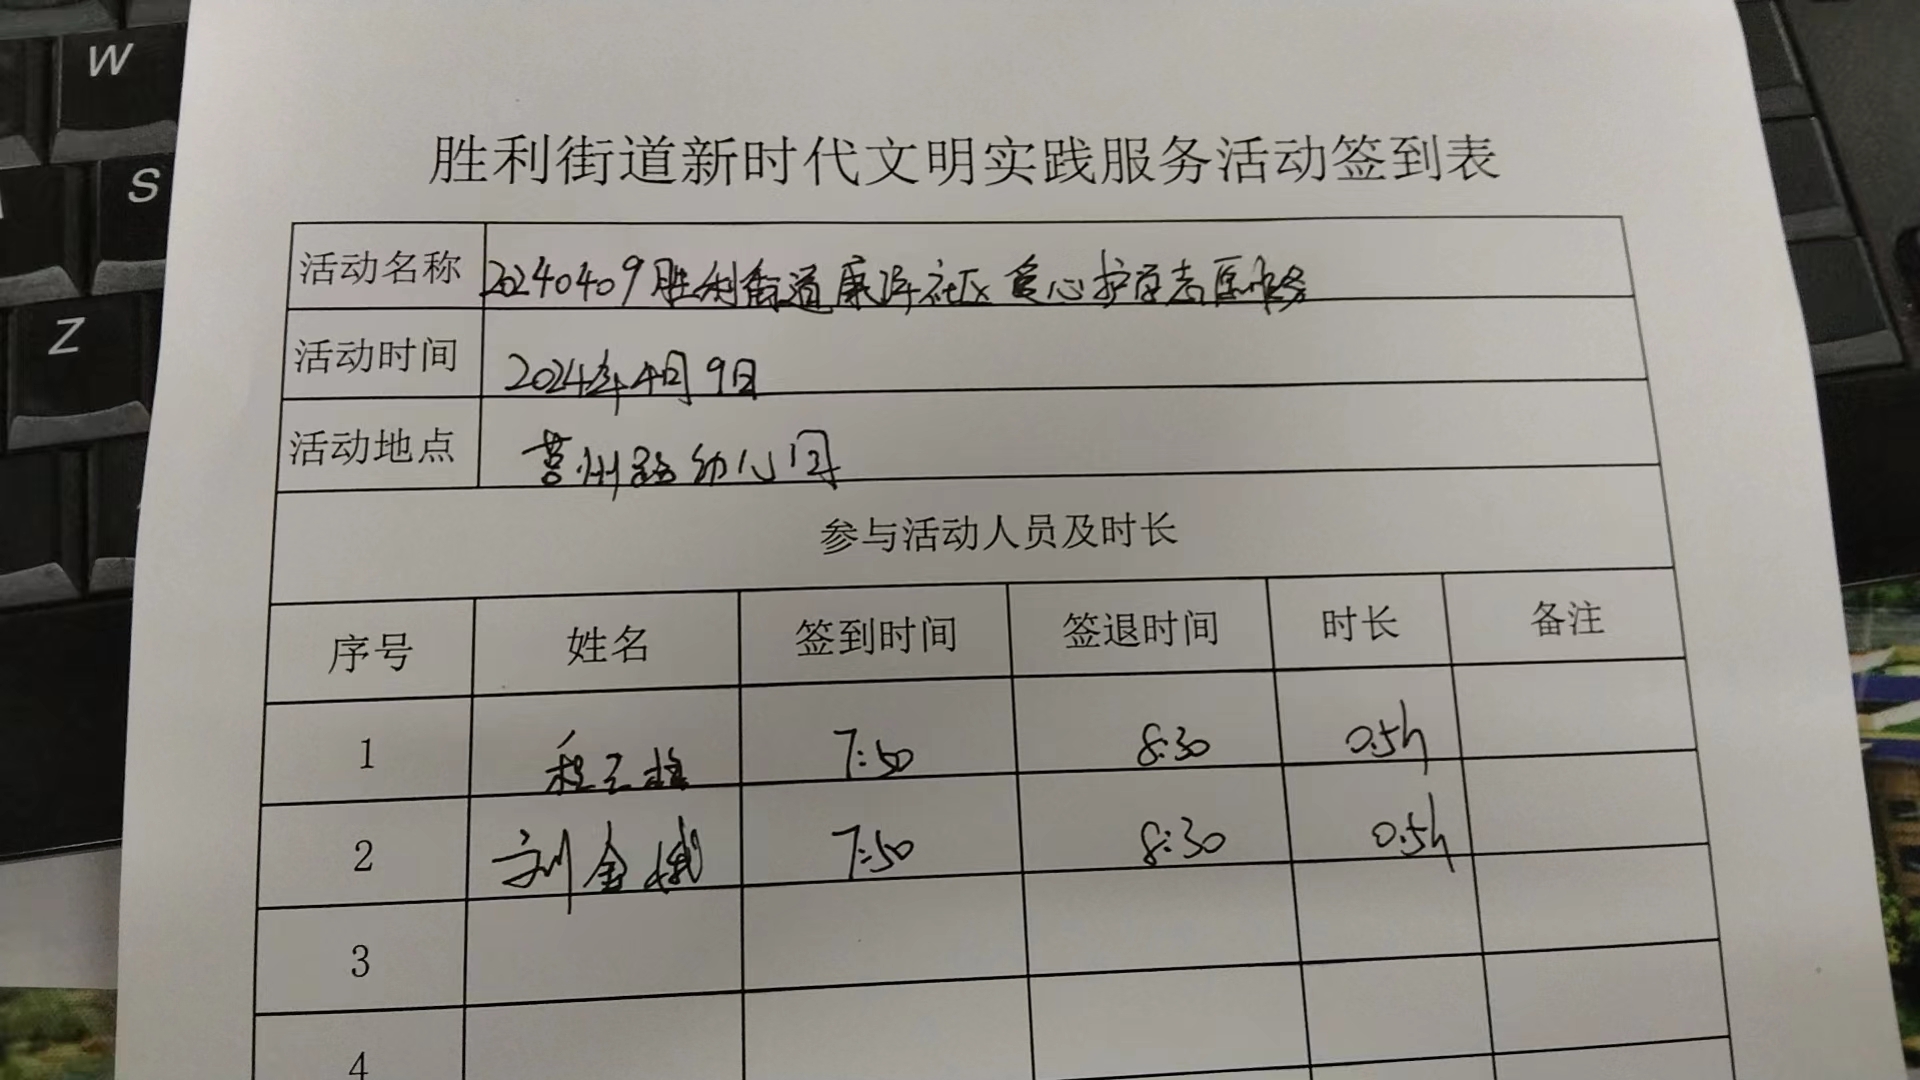 W
S
Z
胜利街道新时代文明实践服务活动签到表
活动名称 20240409胜利街道康洋社区爱心护学志愿服务
活动时间 2024年4月9日
活动地点 莒州路幼儿园
参与活动人员及时长
序号 姓名 签到时间 签退时间 时长 备注
1 程 7:50 8:30 0.5h
2 刘金娥 7:50 8:30 0.5h
3
4